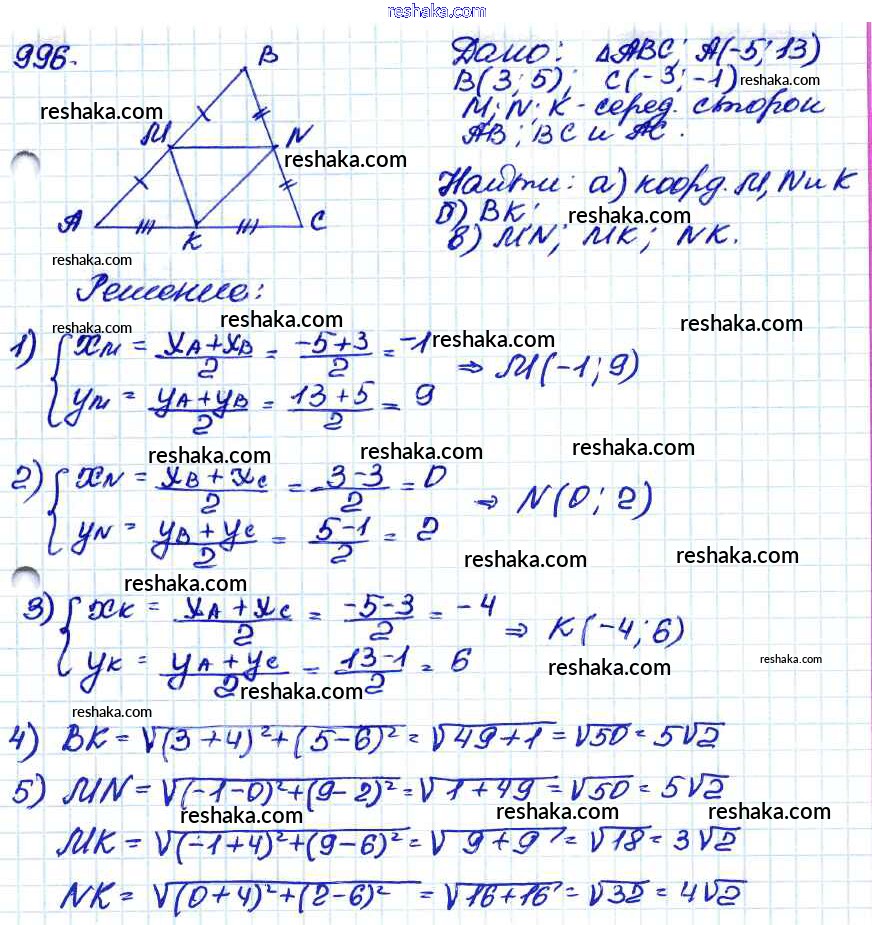 reshaka.com
996.
Дано: △ABC; A(-5; 13)
B(3; 5); C(-3; -1) reshaka.com
M; N; K - серед. сторон
AB; BC и AC.
Найти: а) коорд. M, N и K
б) BK; reshaka.com
в) MN; MK; NK.
B
reshaka.com
M N
reshaka.com
A K C
reshaka.com
Решение:
reshaka.com reshaka.com reshaka.com
1) { xM = (xA + xB)/2 = (-5+3)/2 = -1
yM = (yA + yB)/2 = (13+5)/2 = 9 ⇒ M(-1; 9)
reshaka.com reshaka.com reshaka.com
2) { xN = (xB + xC)/2 = (3-3)/2 = 0
yN = (yB + yC)/2 = (5-1)/2 = 2 ⇒ N(0; 2)
reshaka.com reshaka.com reshaka.com
3) { xK = (xA + xC)/2 = (-5-3)/2 = -4
yK = (yA + yC)/2 = (13-1)/2 = 6 ⇒ K(-4; 6)
reshaka.com reshaka.com reshaka.com
reshaka.com
4) BK = √((3+4)²+(5-6)²) = √(49+1) = √50 = 5√2
5) MN = √((-1-0)²+(9-2)²) = √(1+49) = √50 = 5√2
reshaka.com reshaka.com reshaka.com
MK = √((-1+4)²+(9-6)²) = √(9+9) = √18 = 3√2
NK = √((0+4)²+(2-6)²) = √(16+16) = √32 = 4√2